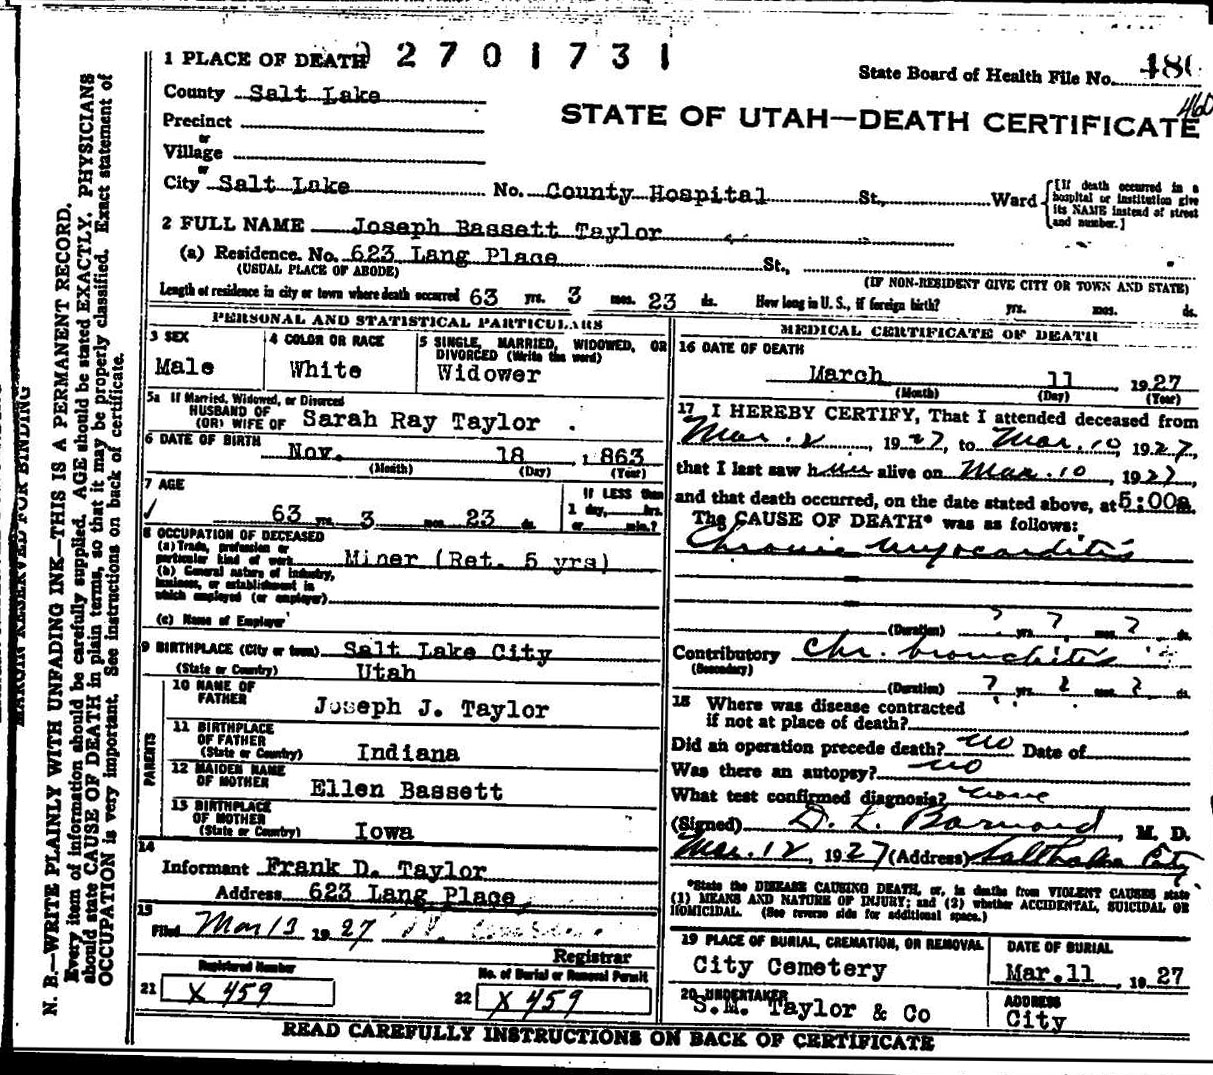 1 PLACE OF DEATH 2701731
State Board of Health File No. 480
460
County Salt Lake
STATE OF UTAH—DEATH CERTIFICATE
Precinct
or
Village
or
City Salt Lake No. County Hospital St., Ward [If death occurred in a hospital or institution give its NAME instead of street and number.]
2 FULL NAME Joseph Bassett Taylor
(a) Residence. No. 623 Lang Place St.,
(USUAL PLACE OF ABODE) (IF NON-RESIDENT GIVE CITY OR TOWN AND STATE)
Length of residence in city or town where death occurred 63 yrs. 3 mos. 23 ds. How long in U. S., if foreign birth? yrs. mos. ds.
PERSONAL AND STATISTICAL PARTICULARS
3 SEX
Male
4 COLOR OR RACE
White
5 SINGLE, MARRIED, WIDOWED, OR
DIVORCED (Write the word)
Widower
5a If Married, Widowed, or Divorced
HUSBAND OF
(OR) WIFE OF Sarah Ray Taylor .
6 DATE OF BIRTH
Nov. 18 , 1863
(Month) (Day) (Year)
7 AGE
63 yrs. 3 mos. 23 ds.
If LESS than
1 day, hrs.
or min.?
8 OCCUPATION OF DECEASED
(a) Trade, profession or
particular kind of work Miner (Ret. 5 yrs)
(b) General nature of industry,
business, or establishment in
which employed (or employer)
(c) Name of Employer
9 BIRTHPLACE (City or town) Salt Lake City
(State or Country) Utah
PARENTS
10 NAME OF
FATHER Joseph J. Taylor
11 BIRTHPLACE
OF FATHER
(State or Country) Indiana
12 MAIDEN NAME
OF MOTHER Ellen Bassett
13 BIRTHPLACE
OF MOTHER
(State or Country) Iowa
14
Informant Frank D. Taylor
Address 623 Lang Place,
15
Filed Mar 13 1927
Registrar
Registered Number
21 X 459
No. of Burial or Removal Permit
22 X 459
MEDICAL CERTIFICATE OF DEATH
16 DATE OF DEATH
March 11 , 1927
(Month) (Day) (Year)
17 I HEREBY CERTIFY, That I attended deceased from
Mar. 2 , 1927, to Mar. 10, 1927,
that I last saw him alive on Mar. 10 , 1927,
and that death occurred, on the date stated above, at 5:00a.
The CAUSE OF DEATH* was as follows:
Chronic myocarditis
(Duration) ? yrs. ? mos. ? ds.
Contributory Chr. bronchitis
(Secondary)
(Duration) ? yrs. ? mos. ? ds.
18 Where was disease contracted
if not at place of death?
Did an operation precede death? no Date of
Was there an autopsy? no
What test confirmed diagnosis? none
(Signed) D. L. Barnard , M. D.
Mar. 12 , 1927 (Address) Salt Lake City
*State the DISEASE CAUSING DEATH, or, in deaths from VIOLENT CAUSES state
(1) MEANS AND NATURE OF INJURY; and (2) whether ACCIDENTAL, SUICIDAL OR
HOMICIDAL. (See reverse side for additional space.)
19 PLACE OF BURIAL, CREMATION, OR REMOVAL
City Cemetery
DATE OF BURIAL
Mar.11 1927
20 UNDERTAKER
S.M. Taylor & Co
ADDRESS
City
READ CAREFULLY INSTRUCTIONS ON BACK OF CERTIFICATE
MARGIN RESERVED FOR BINDING
N. B.—WRITE PLAINLY WITH UNFADING INK—THIS IS A PERMANENT RECORD.
Every item of information should be carefully supplied. AGE should be stated EXACTLY. PHYSICIANS
should state CAUSE OF DEATH in plain terms, so that it may be properly classified. Exact statement of
OCCUPATION is very important. See instructions on back of certificate.